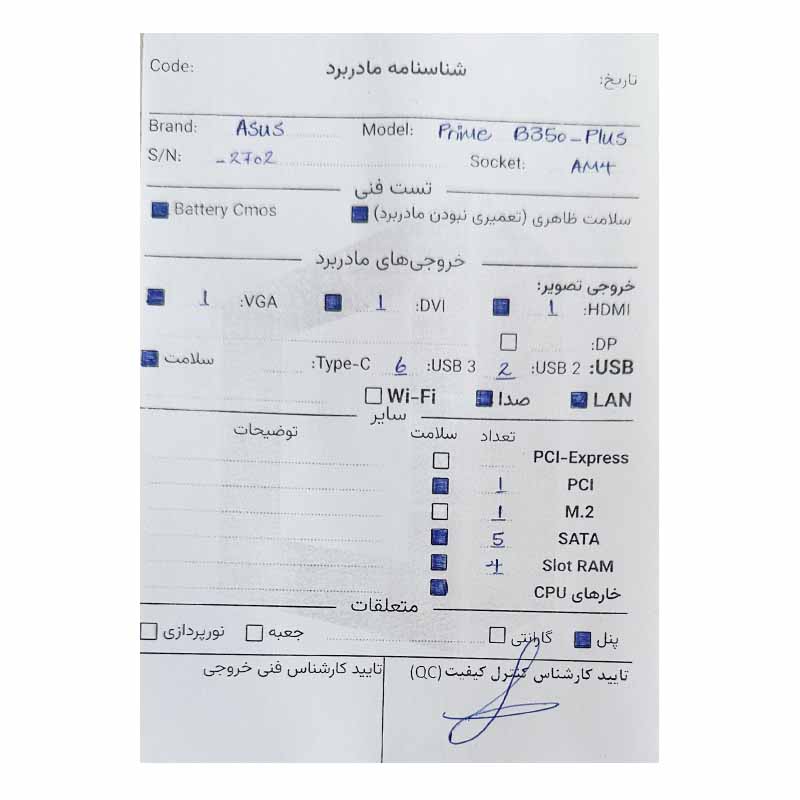 شناسنامه مادربرد
Code:
تاریخ:
Brand: ASUS Model: Prime B350-Plus
S/N: -2702 Socket: AM4
تست فنی
سلامت ظاهری (تعمیری نبودن مادربرد) Battery Cmos
خروجی‌های مادربرد
خروجی تصویر:
HDMI: 1 DVI: 1 VGA: 1
DP:
USB: USB 2: 2 USB 3: 6 Type-C: سلامت
LAN صدا Wi-Fi
سایر
تعداد سلامت توضیحات
PCI-Express
PCI 1
M.2 1
SATA 5
Slot RAM 4
خارهای CPU
متعلقات
پنل گارانتی جعبه نورپردازی
تایید کارشناس کنترل کیفیت (QC) تایید کارشناس فنی خروجی